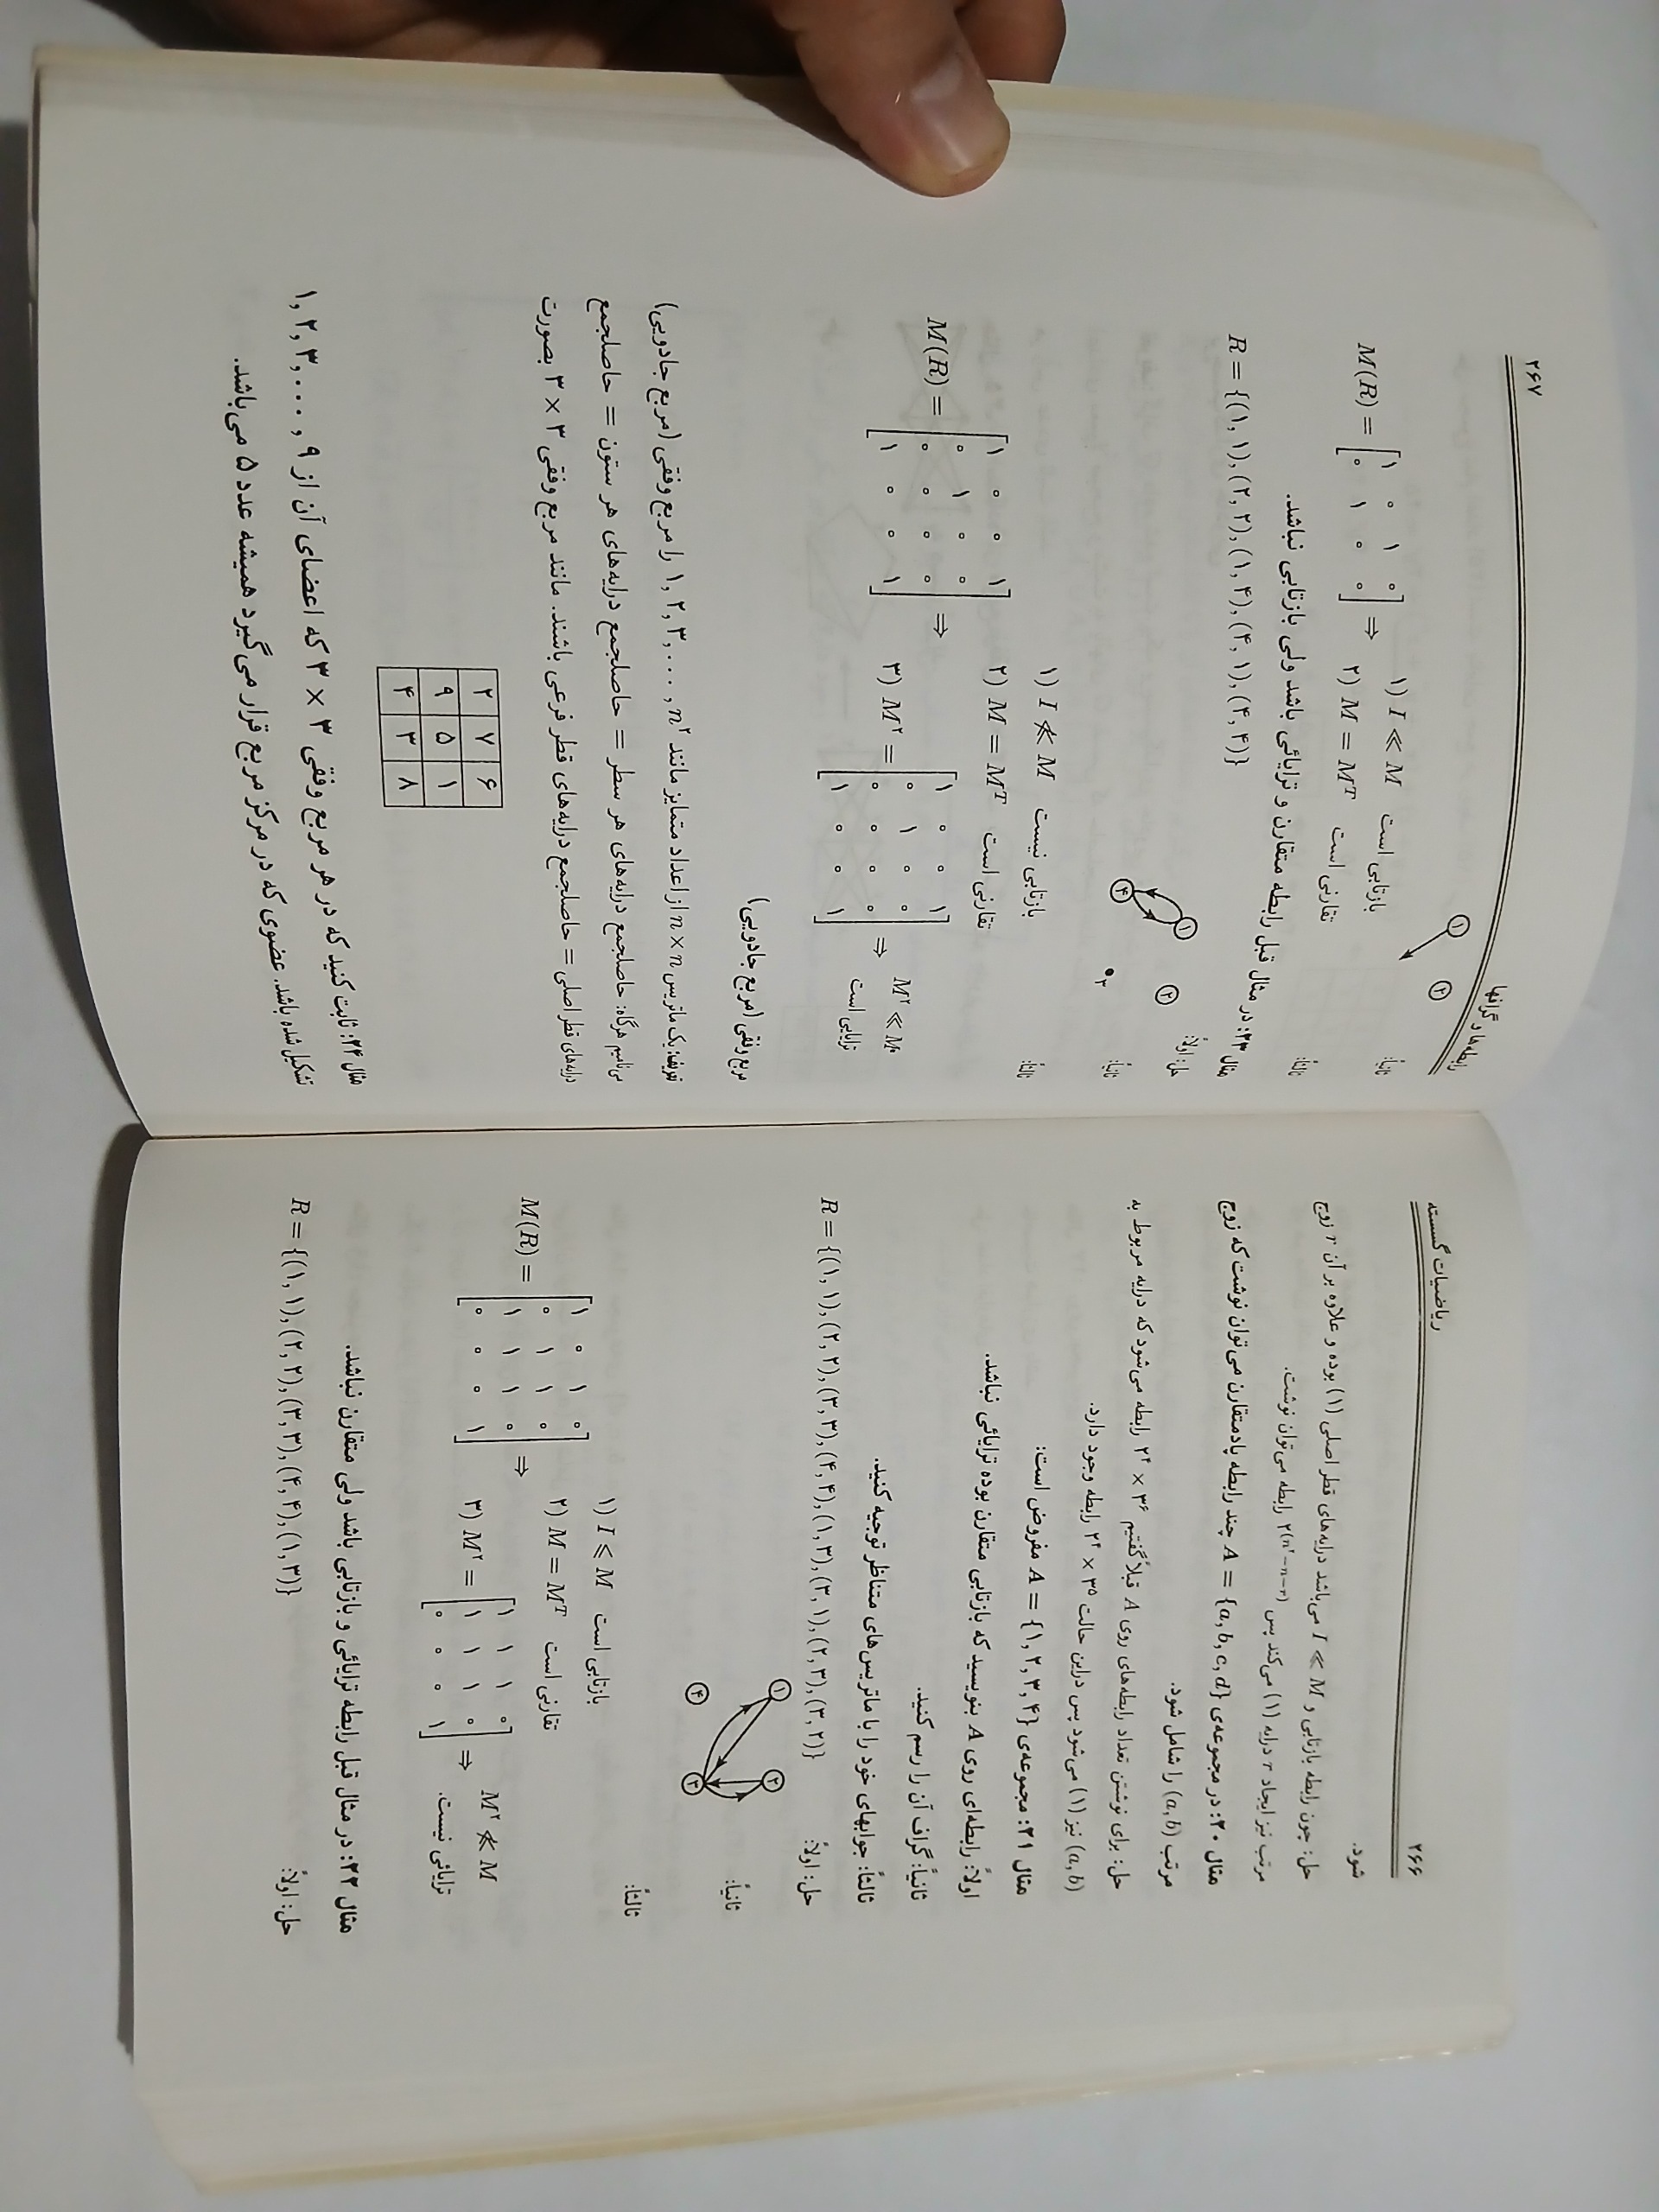 ۲۶۶ ریاضیات گسسته
شود.
حل: چون رابطه بازتابی و I ≪ M می‌باشد درایه‌های قطر اصلی (۱) بوده و علاوه بر آن r زوج
مرتب نیز ایجاد r درایه (۱) می‌کند پس ۲^(n²−n−r) رابطه می‌توان نوشت.
مثال ۲۰: در مجموعه‌ی A = {a, b, c, d} چند رابطه پادمتقارن می‌توان نوشت که زوج
مرتب (a, b) را شامل شود.
حل: برای نوشتن تعداد رابطه‌های روی A قبلاً گفتیم ۲^۴ × ۳^۶ رابطه می‌شود که درایه مربوط به
(a, b) نیز (۱) می‌شود پس دراین حالت ۲^۴ × ۳^۵ رابطه وجود دارد.
مثال ۲۱: مجموعه‌ی A = {۱, ۲, ۳, ۴} مفروض است:
اولاً: رابطه‌ای روی A بنویسید که بازتابی متقارن بوده ترایائی نباشد.
ثانیاً: گراف آن را رسم کنید.
ثالثاً: جوابهای خود را با ماتریس‌های متناظر توجیه کنید.
حل: اولاً:
R = {(۱, ۱), (۲, ۲), (۳, ۳), (۴, ۴), (۱, ۳), (۳, ۱), (۲, ۳), (۳, ۲)}
ثانیاً:
۱ ۲
۴ ۳
ثالثاً:
۱) I ≪ M بازتابی است
M(R) = [۱ ۰ ۱ ۰
۰ ۱ ۱ ۰
۱ ۱ ۱ ۰
۰ ۰ ۰ ۱] ⇒
۲) M = Mᵀ تقارنی است
۳) M² = [۱ ۱ ۱ ۰
۱ ۱ ۱ ۰
۰ ۰ ۰ ۱] ⇒ M² ≪̸ M ترایائی نیست.
مثال ۲۲: در مثال قبل رابطه ترایائی و بازتابی باشد ولی متقارن نباشد.
حل: اولاً:
R = {(۱, ۱), (۲, ۲), (۳, ۳), (۴, ۴), (۱, ۳)}
رابطه‌ها و گرافها ۲۶۷
۱ ۲
ثانیاً:
ثالثاً:
M(R) = [۱ ۰ ۱ ۰
۰ ۱ ۰ ۰] ⇒
۱) I ≪ M بازتابی است
۲) M = Mᵀ تقارنی است
مثال ۲۳: در مثال قبل رابطه متقارن و ترایائی باشد ولی بازتابی نباشد.
حل: اولاً:
R = {(۱, ۱), (۲, ۲), (۱, ۴), (۴, ۱), (۴, ۴)}
ثانیاً:
۱ ۲
۴ ۳
ثالثاً:
۱) I ≪̸ M بازتابی نیست
M(R) = [۱ ۰ ۰ ۱
۰ ۱ ۰ ۰
۰ ۰ ۰ ۰
۱ ۰ ۰ ۱] ⇒
۲) M = Mᵀ تقارنی است
۳) M² = [۱ ۰ ۰ ۱
۰ ۱ ۰ ۰
۰ ۰ ۰ ۰
۱ ۰ ۰ ۱] ⇒ M² ≪ M ترایایی است
مربع وفقی (مربع جادویی)
تعریف: یک ماتریس n × n از اعداد متمایز مانند ۱, ۲, ۳, ..., n² را مربع وفقی (مربع جادویی)
می‌نامیم هرگاه: حاصلجمع درایه‌های هر سطر = حاصلجمع درایه‌های هر ستون = حاصلجمع
درایه‌های قطر اصلی = حاصلجمع درایه‌های قطر فرعی باشند. مانند مربع وفقی ۳ × ۳ بصورت
۲ ۷ ۶
۹ ۵ ۱
۴ ۳ ۸
مثال ۲۴: ثابت کنید که در هر مربع وفقی ۳ × ۳ که اعضای آن از ۹, ..., ۳, ۲, ۱
تشکیل شده باشد. عضوی که در مرکز مربع قرار می‌گیرد همیشه عدد ۵ می‌باشد.